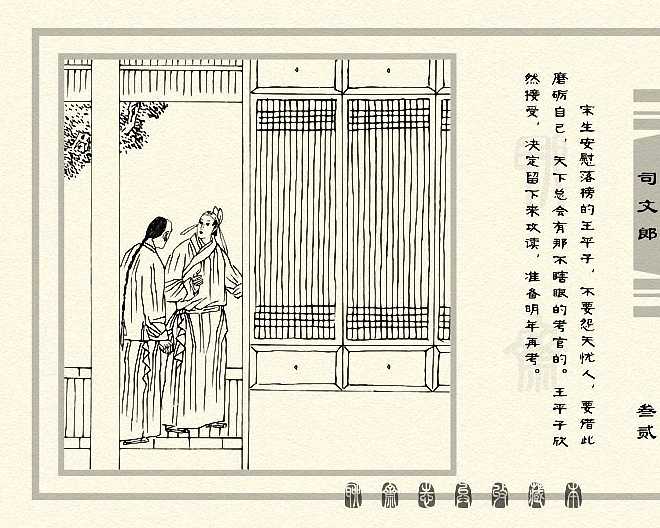 宋生安慰落榜的王平子，不要怨天忧人，要借此
磨砺自己，天下总会有那不瞎眼的考官的。王平子欣
然接受，决定留下来攻读，准备明年再考。
司文郎
叁贰
聊斋志异收藏本